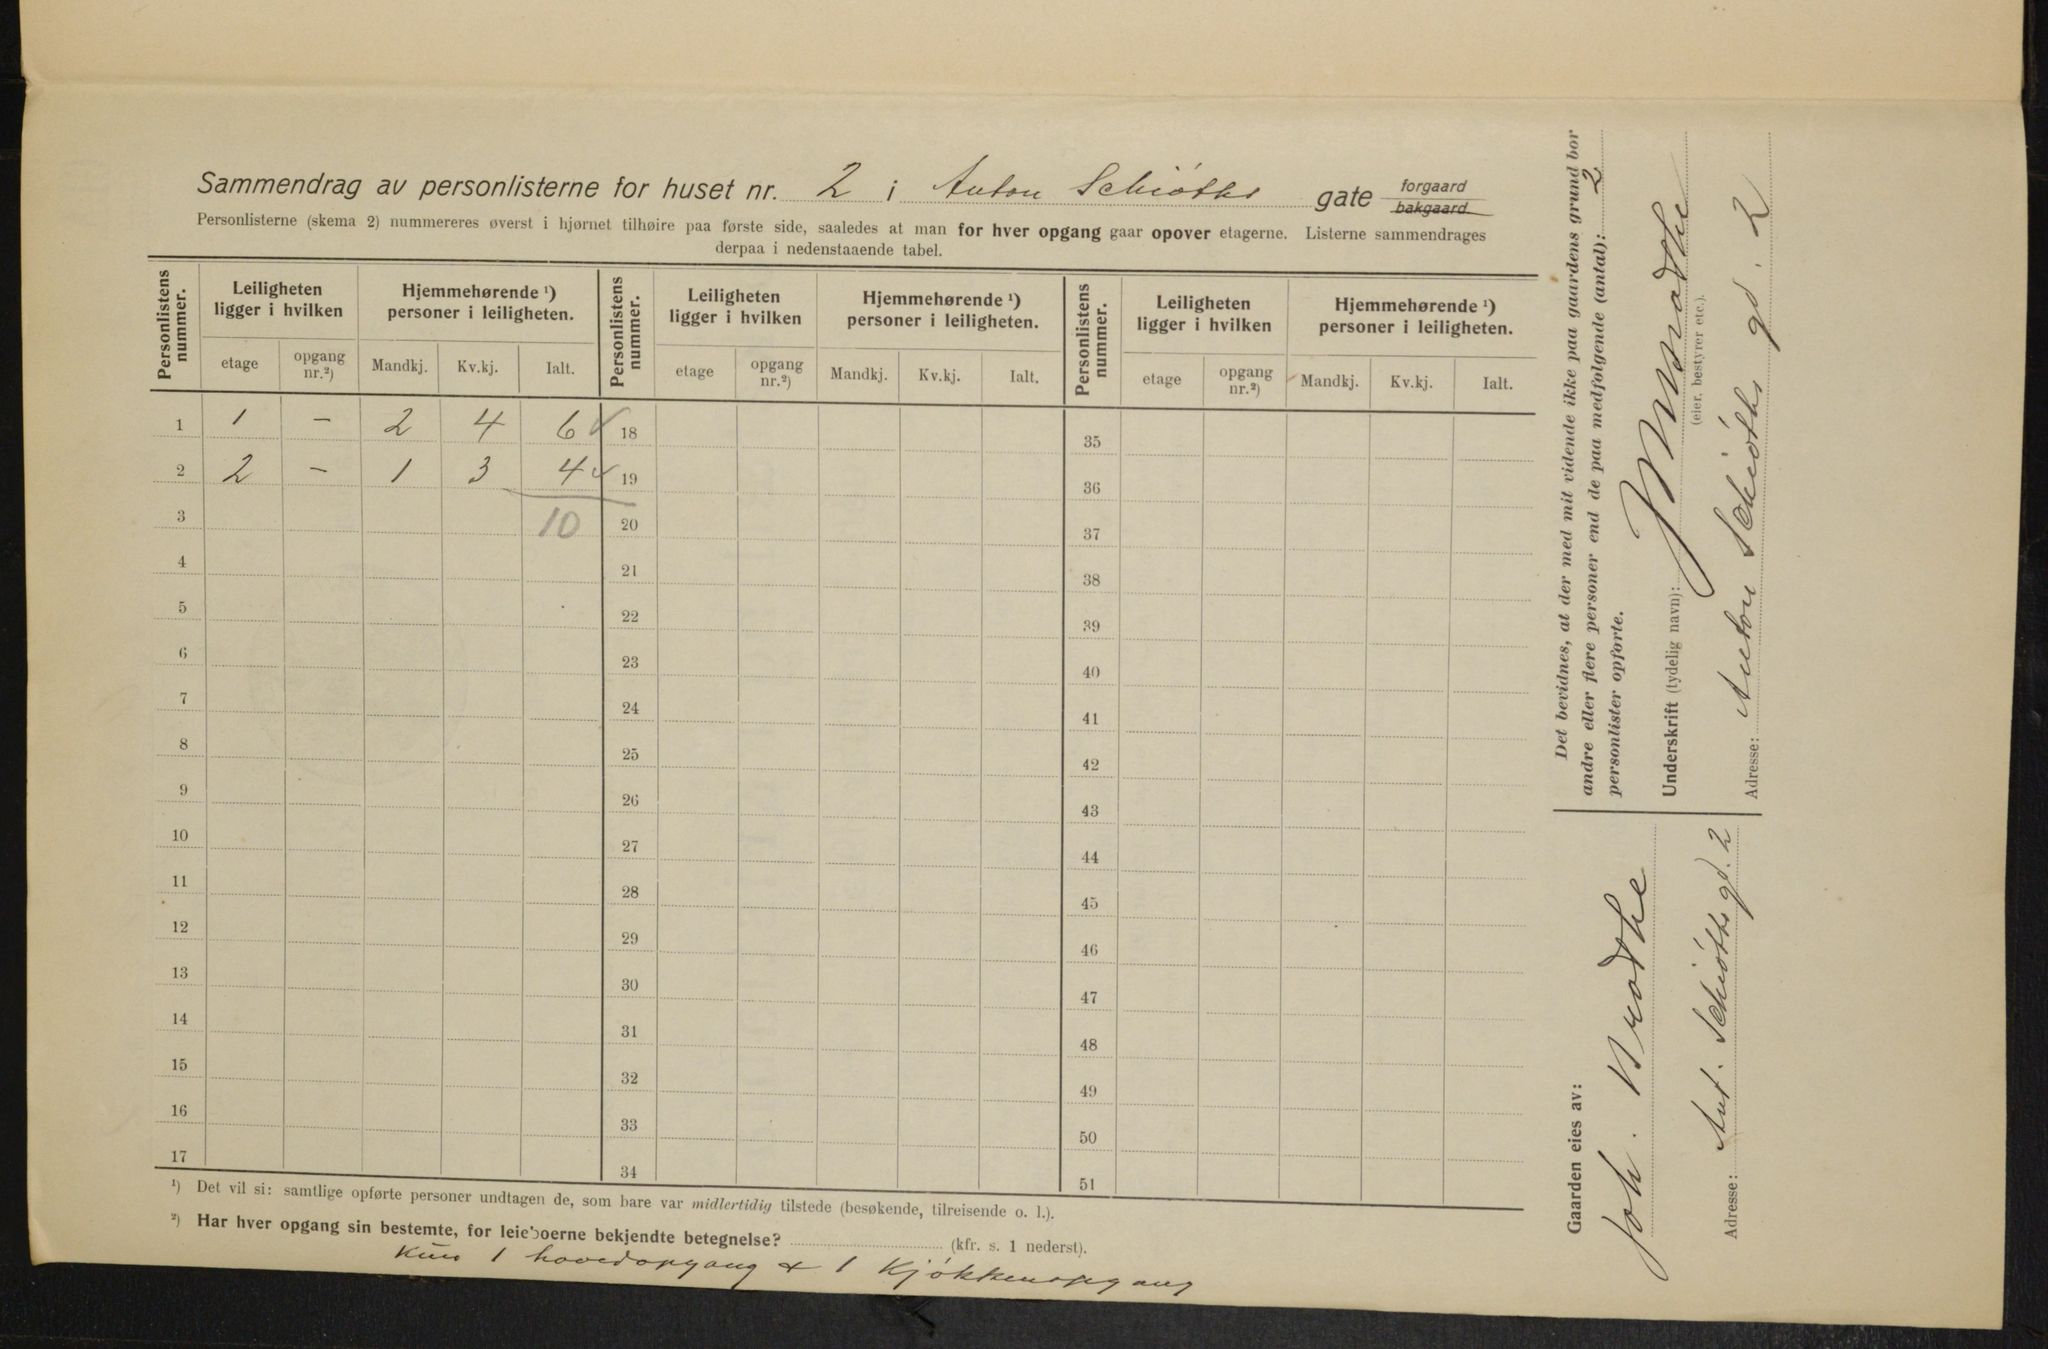 Sammendrag av personlisterne for huset nr. 2 i Anton Schiøths gate forgaard bakgaard
Personlisterne (skema 2) nummereres øverst i hjørnet tilhøire paa første side, saaledes at man for hver opgang gaar opover etagerne. Listerne sammendrages
derpaa i nedenstaaende tabel.
Personlistens nummer. Leiligheten ligger i hvilken Hjemmehørende ¹) personer i leiligheten. Personlistens nummer. Leiligheten ligger i hvilken Hjemmehørende ¹) personer i leiligheten. Personlistens nummer. Leiligheten ligger i hvilken Hjemmehørende ¹) personer i leiligheten.
etage opgang nr.²) Mandkj. Kv.kj. Ialt. etage opgang nr.²) Mandkj. Kv.kj. Ialt. etage opgang nr.²) Mandkj. Kv.kj. Ialt.
1 1 – 2 4 6 18 35
2 2 – 1 3 4 19 36
3 10 20 37
4 21 38
5 22 39
6 23 40
7 24 41
8 25 42
9 26 43
10 27 44
11 28 45
12 29 46
13 30 47
14 31 48
15 32 49
16 33 50
17 34 51
¹) Det vil si: samtlige opførte personer undtagen de, som bare var midlertidig tilstede (besøkende, tilreisende o. l.).
²) Har hver opgang sin bestemte, for leieboerne bekjendte betegnelse? (kfr. s. 1 nederst).
Kun 1 hovedopgang & 1 Kjøkkenopgang
Det bevidnes, at der med mit vidende ikke paa gaardens grund bor
andre eller flere personer end de paa medfølgende (antal): 2
personlister opførte.
Underskrift (tydelig navn):
(eier, bestyrer etc.).
Adresse: Anton Schiøths gd. 2
Gaarden eies av:
Joh. Brodthe
Adresse: Ant. Schiøths gd. 2